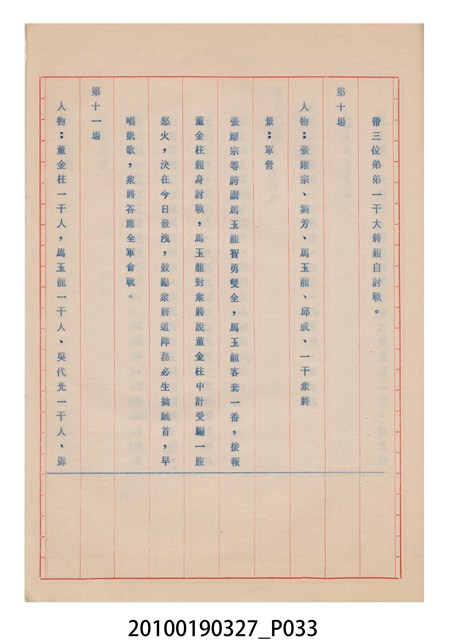 帶三位弟弟一干大將親自討戰。
第十場
人物：張耀宗、劉芳、馬玉龍、邱成、一干衆將
景：軍營
張耀宗等誇讚馬玉龍智勇雙全，馬玉龍客套一番，接報
董金柱親身討戰，馬玉龍對衆將說董金柱中計受騙一腹
怒火，決在今日發洩，鼓勵衆將這陣務必生擒賊首，早
唱凱歌，衆將答應全軍會戰。
第十一場
人物：董金柱一干人，馬玉龍一干人、吳代光一干人、鄧
20100190327_P033